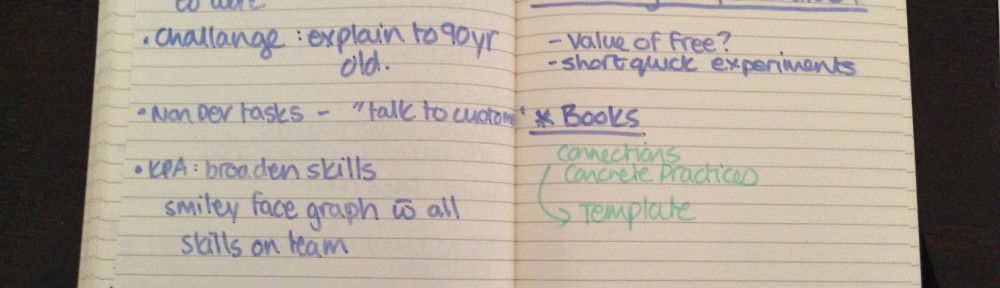 • Challange : explain to 90yr
old.
• Non Dev tasks - "talk to
• KPA : broaden skills
smiley face graph w all
skills on team
- Value of free?
- short quick experiments
* Books
connections
Concrete Practices
Template